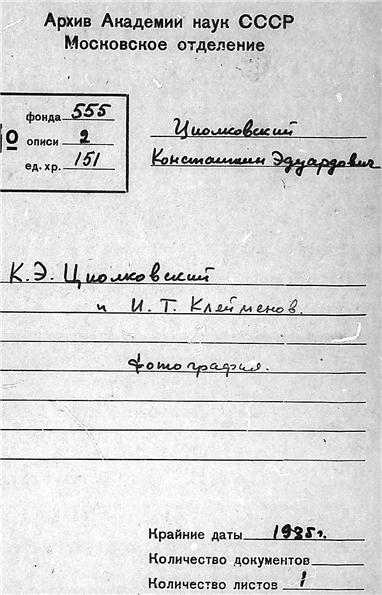 Архив Академии наук СССР
Московское отделение
фонда 555
О описи 2
ед. хр. 151
Циолковский
Константин Эдуардович
К. Э. Циолковский
и И. Т. Клейменов.
фотография.
Крайние даты 1935г.
Количество документов
Количество листов 1